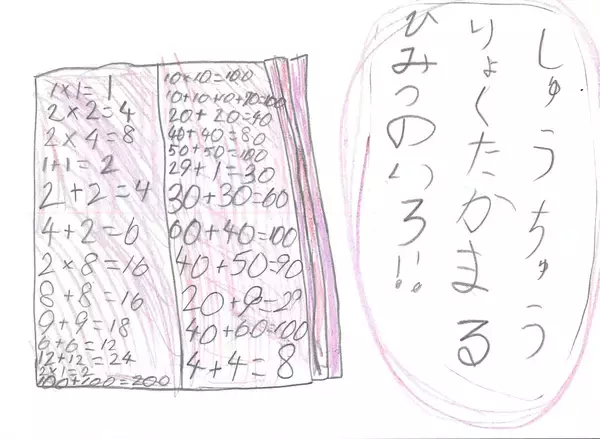 1×1=1
2×2=4
2×4=8
1+1=2
2+2=4
4+2=6
2×8=16
8+8=16
9+9=18
6+6=12
12+12=24
2×1=2
100+100=200
10×10=100
20+20=40
40+40=80
50+50=100
29+1=30
30+30=60
60+40=100
40+50=90
20+9=29
40+60=100
4+4=8
しゅうちゅう
りょくたかまる
ひみつのいろ!!